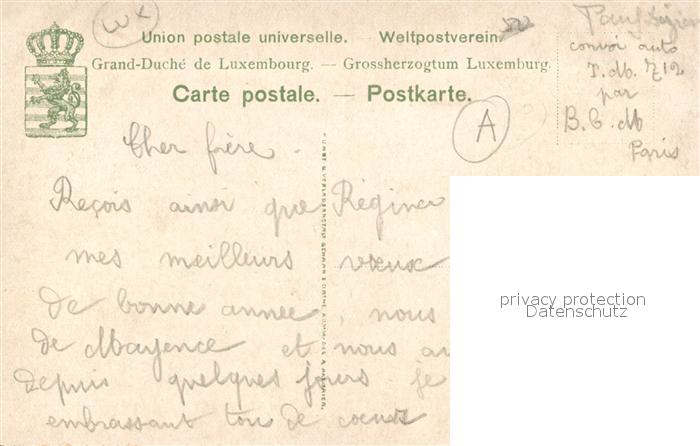 Union postale universelle. Weltpostverein.
Grand-Duché de Luxembourg. — Grossherzogtum Luxemburg.
Carte postale. — Postkarte.
convoi auto
par
B. C. M
Paris
A
Cher frère.
Reçois ainsi que Régina
mes meilleurs vœux
de bonne année, nous
de Mayence et nous
depuis quelques jours je
embrassant ton de coeur
privacy protection
Datenschutz